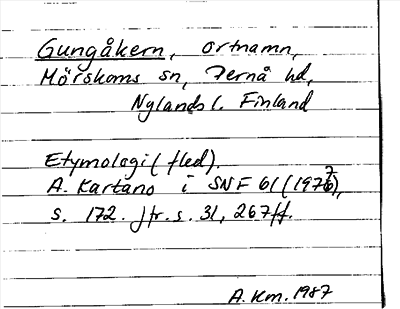 Gungåkern, ortnamn,
Mörskoms sn, Pernå hd,
Nylands l. Finland
Etymologi (fled),
A. Kartano i SNF 61 (1977),
s. 172. Jfr. s. 31, 267ff.
A. Km. 1987